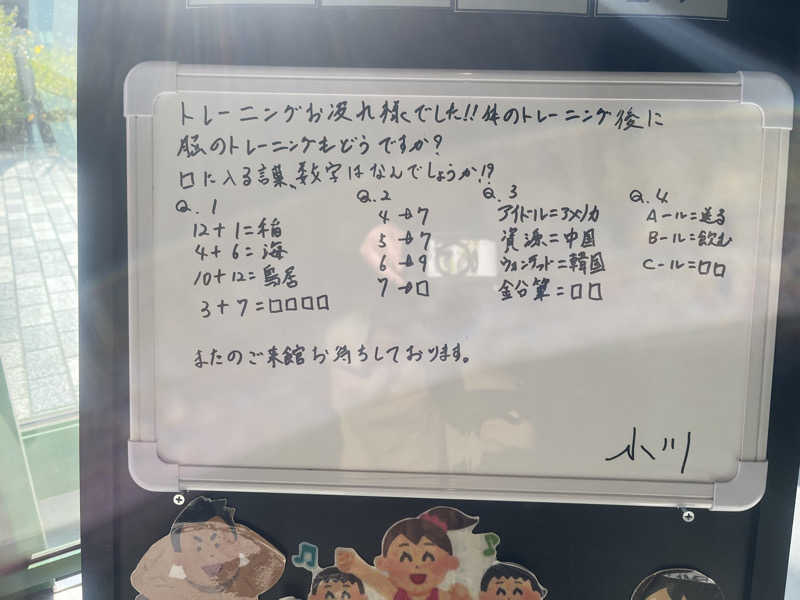 トレーニングお疲れ様でした!!体のトレーニング後に
脳のトレーニングもどうですか?
口に入る言葉、数字はなんでしょうか!?
Q.1
12+1=稲
4+6=海
10+12=鳥居
3+7=□□□□
Q.2
4→7
5→7
6→9
7→□
Q.3
アイドル=アメリカ
資源=中国
ウォンテッド=韓国
金谷筆=□□
Q.4
A-ル=送る
B-ル=飲む
C-ル=□□
またのご来館お待ちしております。
小川